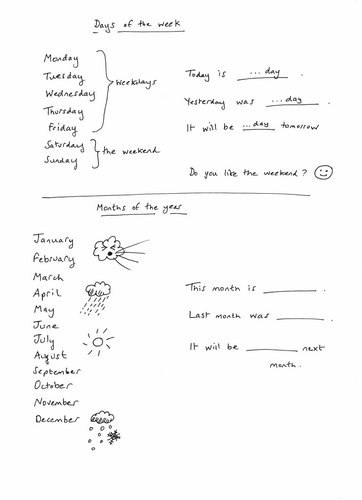 Days of the week
Monday
Tuesday
Wednesday
Thursday
Friday
weekdays
Saturday
Sunday
the weekend
Today is ...day .
Yesterday was ...day .
It will be ...day tomorrow
Do you like the weekend?
Months of the year
January
February
March
April
May
June
July
August
September
October
November
December
This month is ________ .
Last month was ________ .
It will be ________ next
month.